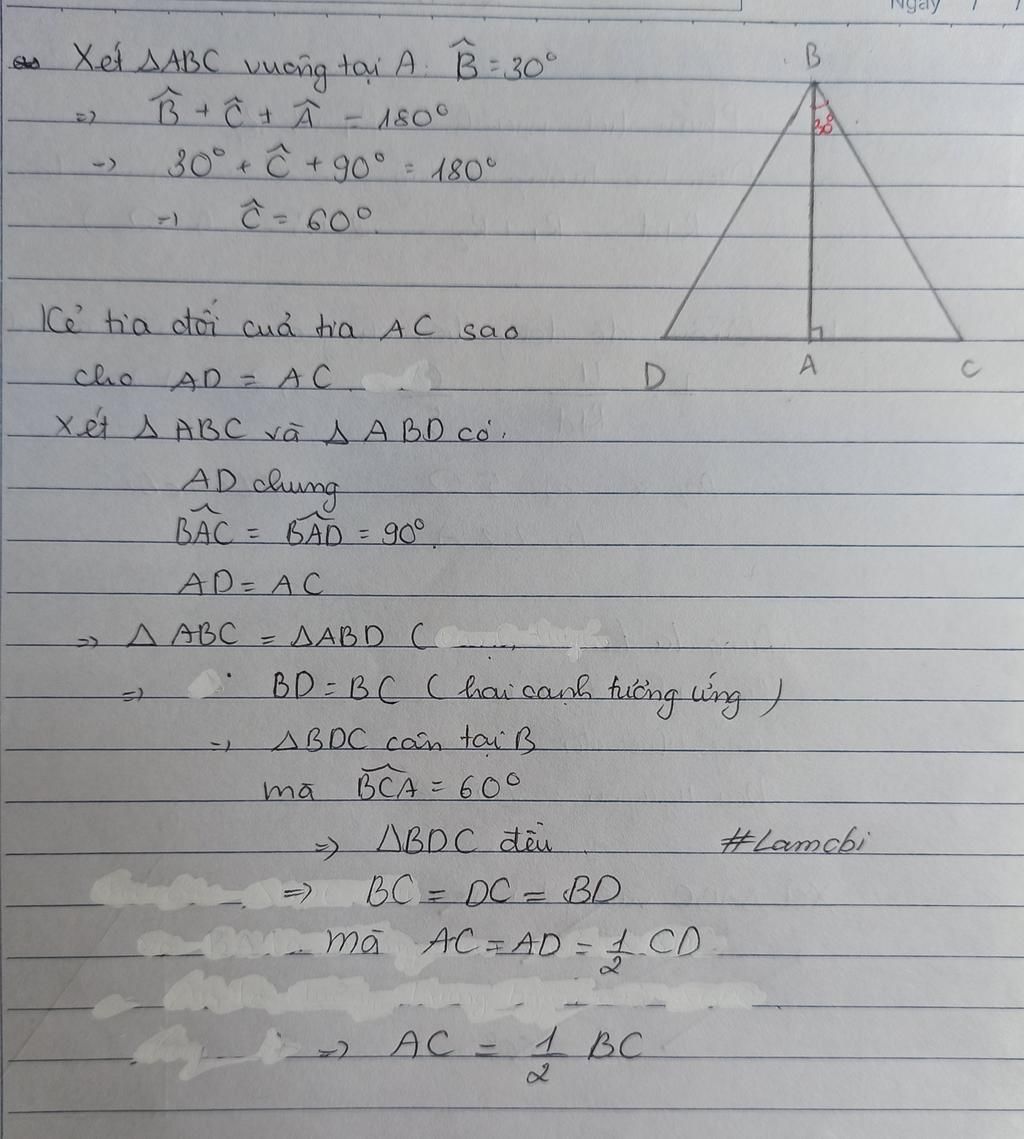 Ngày / /
Xét ΔABC vuông tại A. B̂ = 30°
=> B̂ + Ĉ + Â = 180°
-> 30° + Ĉ + 90° = 180°
=> Ĉ = 60°.
Kẻ tia đối cuả tia AC sao
cho AD = AC
Xét Δ ABC và Δ ABD có.
AD chung
B̂AC = B̂AD = 90°.
AD = AC
=> Δ ABC = ΔABD (
=> BD = BC ( hai cạnh tương ứng )
=> ΔBDC cân tại B
mà B̂CA = 60°
=> ΔBDC đều
#Lamcbi
=> BC = DC = BD
mà AC = AD = 1/2 CD
=> AC = 1/2 BC
B
30°
D
A
C